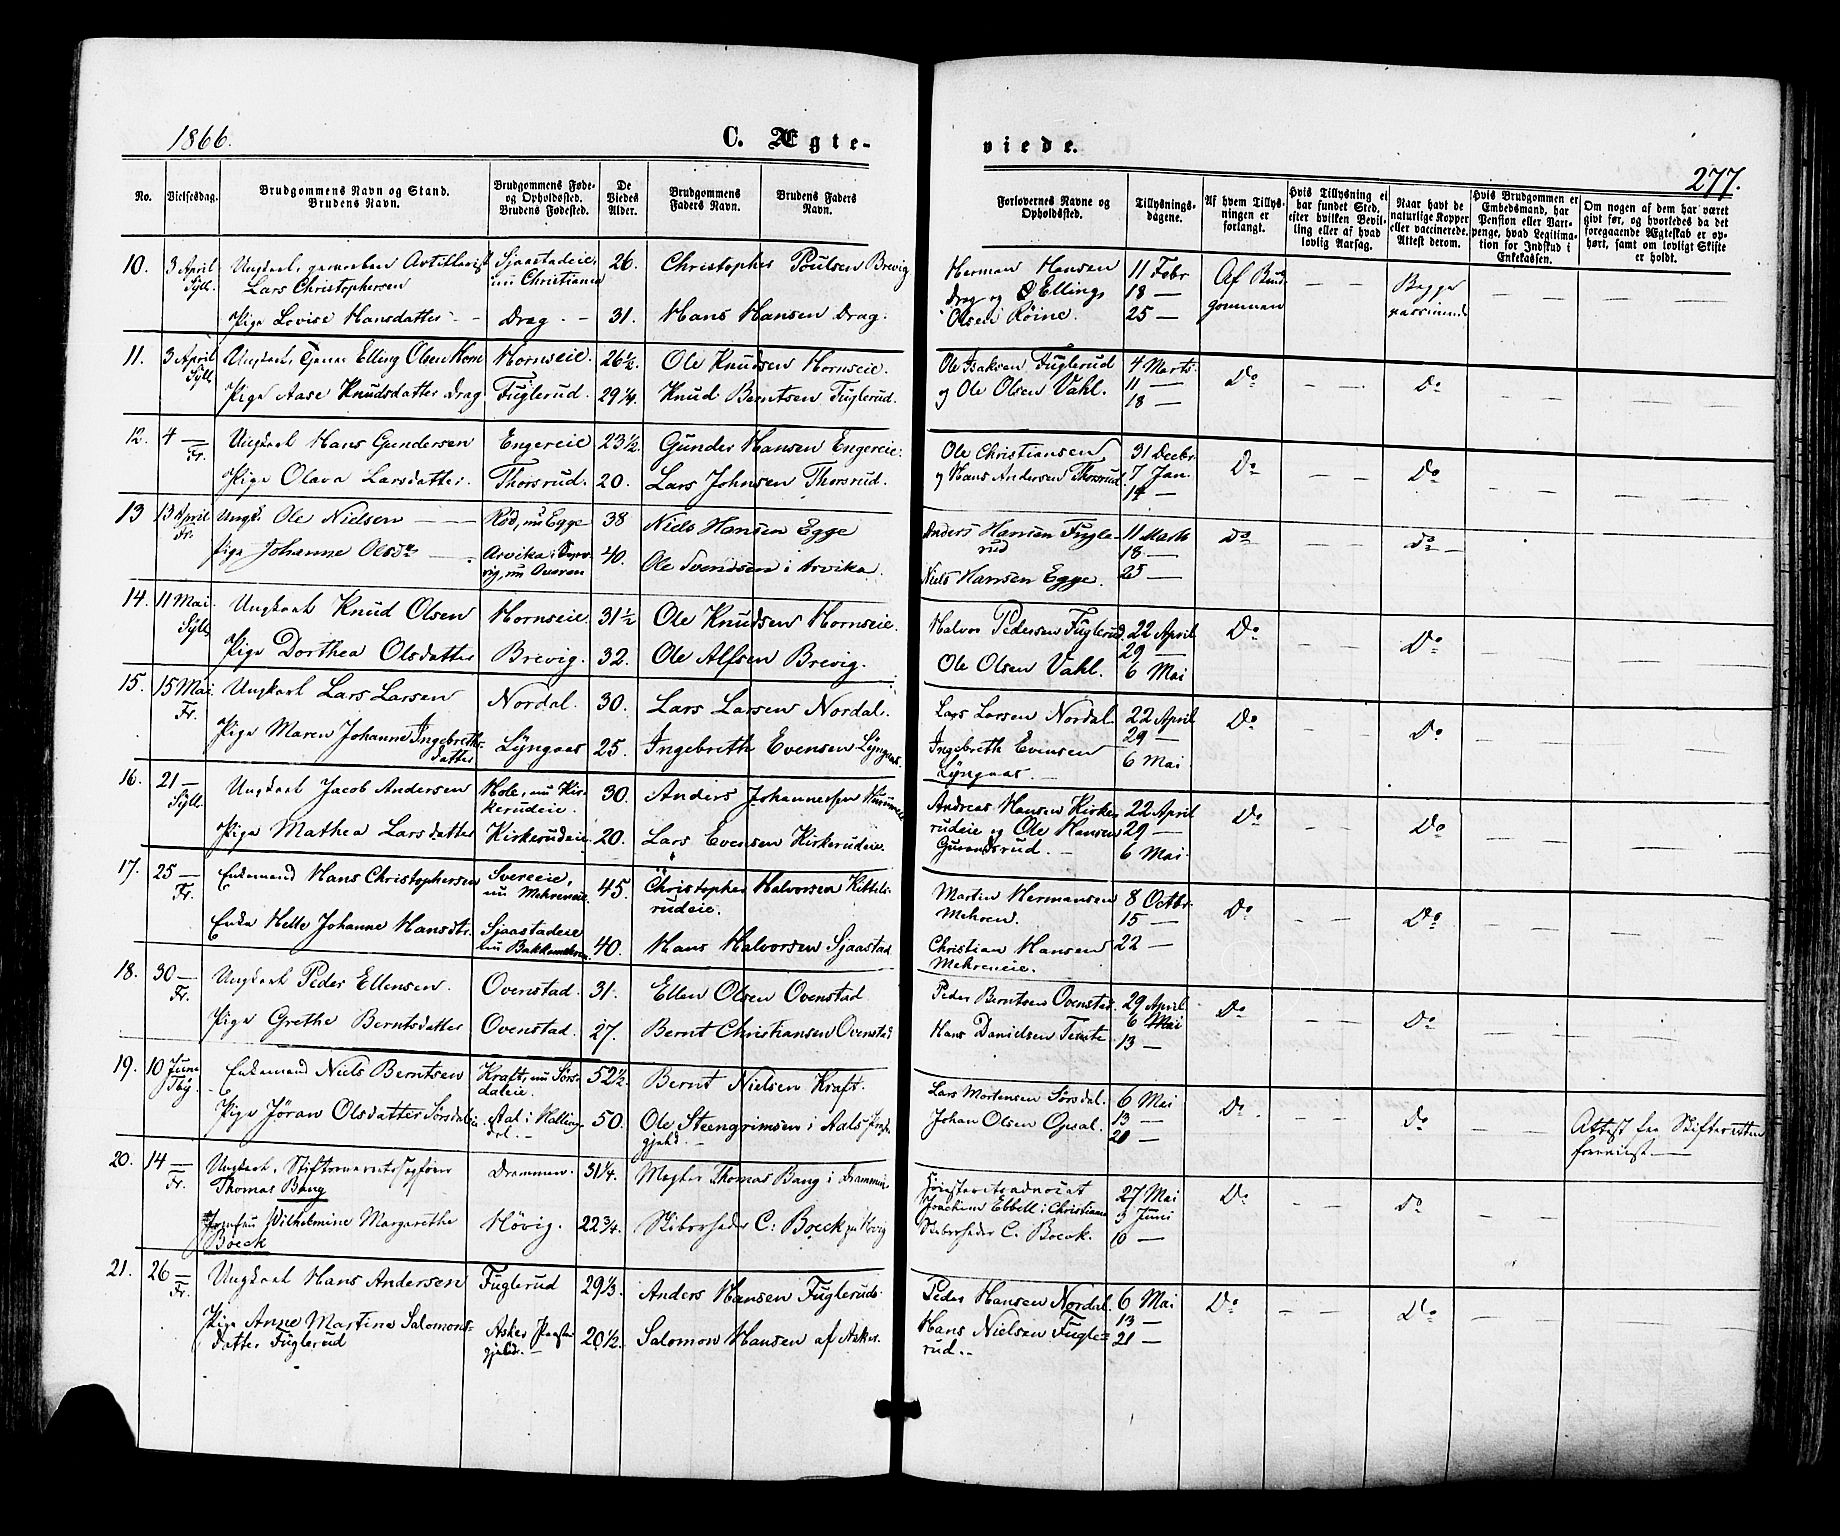 1866.
C. Ægte-
viede.
277.
No.
Vielsesdag.
Brudgommens Navn og Stand.
Brudens Navn.
Brudgommens Føde-
og Opholdsted.
Brudens Fødested.
De
Viedes
Alder.
Brudgommens
Faders Navn.
Brudens Faders
Navn.
Forlovernes Navne og
Opholdsted.
Tillysnings-
dagene.
Af hvem Tillys-
ningen er
forlangt.
Hvis Tillysning ei
har fundet Sted,
efter hvilken Bevil-
ling eller af hvad
lovlig Aarsag.
Naar havt de
naturlige Kopper
eller vaccinerede.
Attest derom.
Hvis Brudgommen er
Embedsmand, har
Pension eller Vart-
penge, hvad Legitima-
tion for Indskud i
Enkekassen.
Om nogen af dem har været
givt før, og hvorledes da det
foregaaende Ægteskab er op-
hørt, samt om lovligt Skifte
er holdt.
10. 3 April Ungkarl, Sjaastadeie, 26. Christopher Poulsen Brevig
Syll. Lars Christophersen nu Christiania
Pige Lovise Hansdatter - Drag. - 31. Hans Hansen Drag.
Herman Hansen 11 Febr Af Brud- - - Begge - - - -
Drag og Ellings 18 - gommen
Olsen Røine. 25 -
11. 3 April Ungkarl, Elling Olsen Horn Hornseie. 26½ Ole Knudsen Hornseie.
Syll Pige Aase Knudsdatter Drag Fuglerud. 29¼ Knud Berntsen Fuglerud.
Ole Isaksen Fuglerud 4 Marts Do - - Do - - - -
og Ole Olsen Vahl. 11 -
18 -
12. 4 - Ungkarl Hans Gundersen Engereie 23½ Gunder Hansen Engereie.
Fr. Pige Olava Larsdatter. Thorsrud. 20. Lars Johnsen Thorsrud.
Ole Christiansen 31 Decbr. Do - - Do - - - -
og Hans Andersen Thorsrud. 7 Jan.
14 -
13 13 April Ungk. Ole Nielsen - - Rød, nu Egge 38 Niels Hansen Egge
Fr. Pige Johanne Olsdr - Arvika i 40. Ole Svendsen i Arvika.
Anders Hansen Fugle- 11 Marts Do - - Do -
rud 18 -
Niels Hansen Egge. 25 -
14. 11 Mai Ungkarl Knud Olsen Hornseie. 31½ Ole Knudsen Hornseie.
Sylls Pige Dorthea Olsdatter Brevig. 32. Ole Alfsen Brevig.
Halvor Pedersen Fuglerud. 22 April Do - - Do - - - -
29 -
Ole Olsen Vahl. 6 Mai
15. 15 Mai Ungkarl Lars Larsen Nordal. 30. Lars Larsen Nordal.
Fr. Pige Maren Johanne Ingebreths- Lyngaas 25. Ingebreth Evensen Lyngaas.
datter
Lars Larsen Nordal. 22 April Do - - Do - - - -
Ingebreth Evensen 29 -
Lyngaas. - 6 Mai
16. 21 - Ungkarl Jacob Andersen Hole, nu Kir- 30. Anders Johannessen
Sylls kerudeie.
Pige Mathea Larsdatter Kirkerudeie. 20. Lars Evensen Kirkerudeie.
Andreas Hansen Kirke- 22 April Do - - Do - - - -
rudeie og Ole Hansen 29 -
Gunersrud. - 6 Mai.
17. 25 - Enkemand Hans Christophersen Svereeie, 45. Christopher Halvorsen Kittels-
Fr. nu Mehreneie. rudeie.
Enke Helle Johanne Hansdtr. Sjaastadeie 40. Hans Halvorsen Sjaastad
nu Bakkemehren.
Martin Hermansen 8 Octbr. Do - - Do - - - -
Mehren. 15 -
Christian Hansen 22 -
Mehreneie.
18. 30 - Ungkarl Peder Ellensen. Ovenstad. 31. Ellen Olsen Ovenstad
Fr. Pige Grethe Berntsdatter Ovenstad. 27. Bernt Christiansen Ovenstad
Peder Berntsen Ovenstad. 29 April. Do - - Do - - - -
6 Mai
Hans Danielsen Temte 13 -
19. 10 Juni Enkemand Niels Berntsen Kraft, nu Sørs- 52½ Bernt Nielsen Kraft.
daleie.
Pige Jøran Olsdatter Sørsdaleie. Aal i Halling- 50. Ole Steengrimsen i Aals Præste-
dal. - gjeld. -
Lars Mortensen Sørsdal. 6 Mai Do - - Do - - Attest fra Skifteretten
Johan Olsen Opsal. 13 - foreviist. -
20 -
20. 14 - Ungkarl, Drammen. 31¼. Mægler Thomas Bang i Drammen
Fr. Thomas Bang
Jomfru Wilhelmine Margarethe Høvig. 22¾. Skibsrheder C. Boeck paa Høvig
Boeck
Høiesteretsadvocat 27 Mai Do - - Do - - - -
Joachim Ebbell i Christiania 3 Juni
Skibsrheder C. Boeck. 10 -
21. 26 - Ungkarl Hans Andersen Fuglerud 29⅓ Anders Hansen Fuglerud.
Fr. Pige Anne Martine Salomons- Asker Præste- 20½. Salomon Hansen af Asker.
datter Fuglerud gjeld. -
Peder Hansen Nordal. 6 Mai Do - - Do - - - -
Hans Nielsen Fugle- 13 -
rud. - 21 -